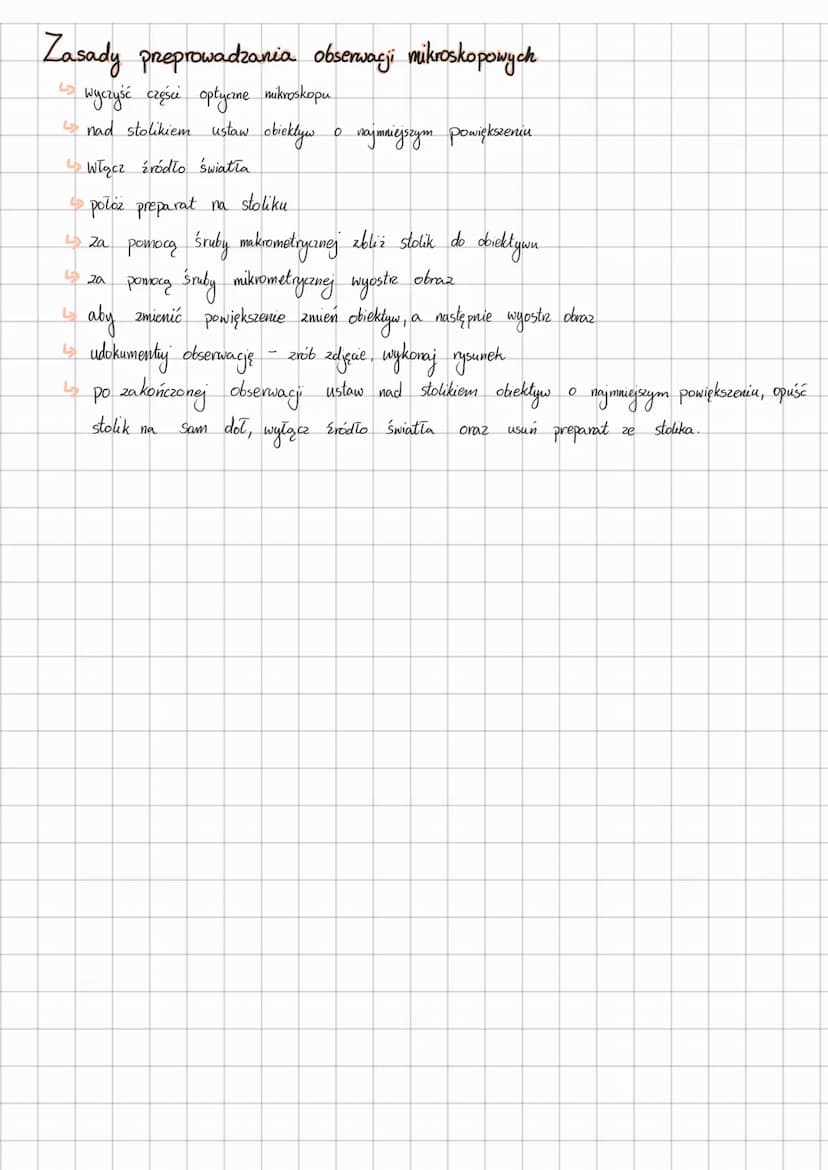 Zasady preprowadzania obserwacji mikroskopowych
↳ wyczyść części optyczne mikroskopu
↳ nad stolikiem ustaw obiektyw o najmniejszym powiększeniu
↳ włącz źródło światła
↳ połóż preparat na stoliku
↳ za pomocą śruby makrometrycznej zbliż stolik do obiektywu
↳ za pomocą śruby mikrometrycznej wyostrz obraz
↳ aby zmienić powiększenie zmień obiektyw, a następnie wyostrz obraz
↳ udokumentuj obserwację - zrób zdjęcie, wykonaj rysunek
↳ po zakończonej obserwacji ustaw nad stolikiem obiektyw o najmniejszym powiększeniu, opuść
stolik na sam dół, wyłącz źródło światła oraz usuń preparat ze stolika.